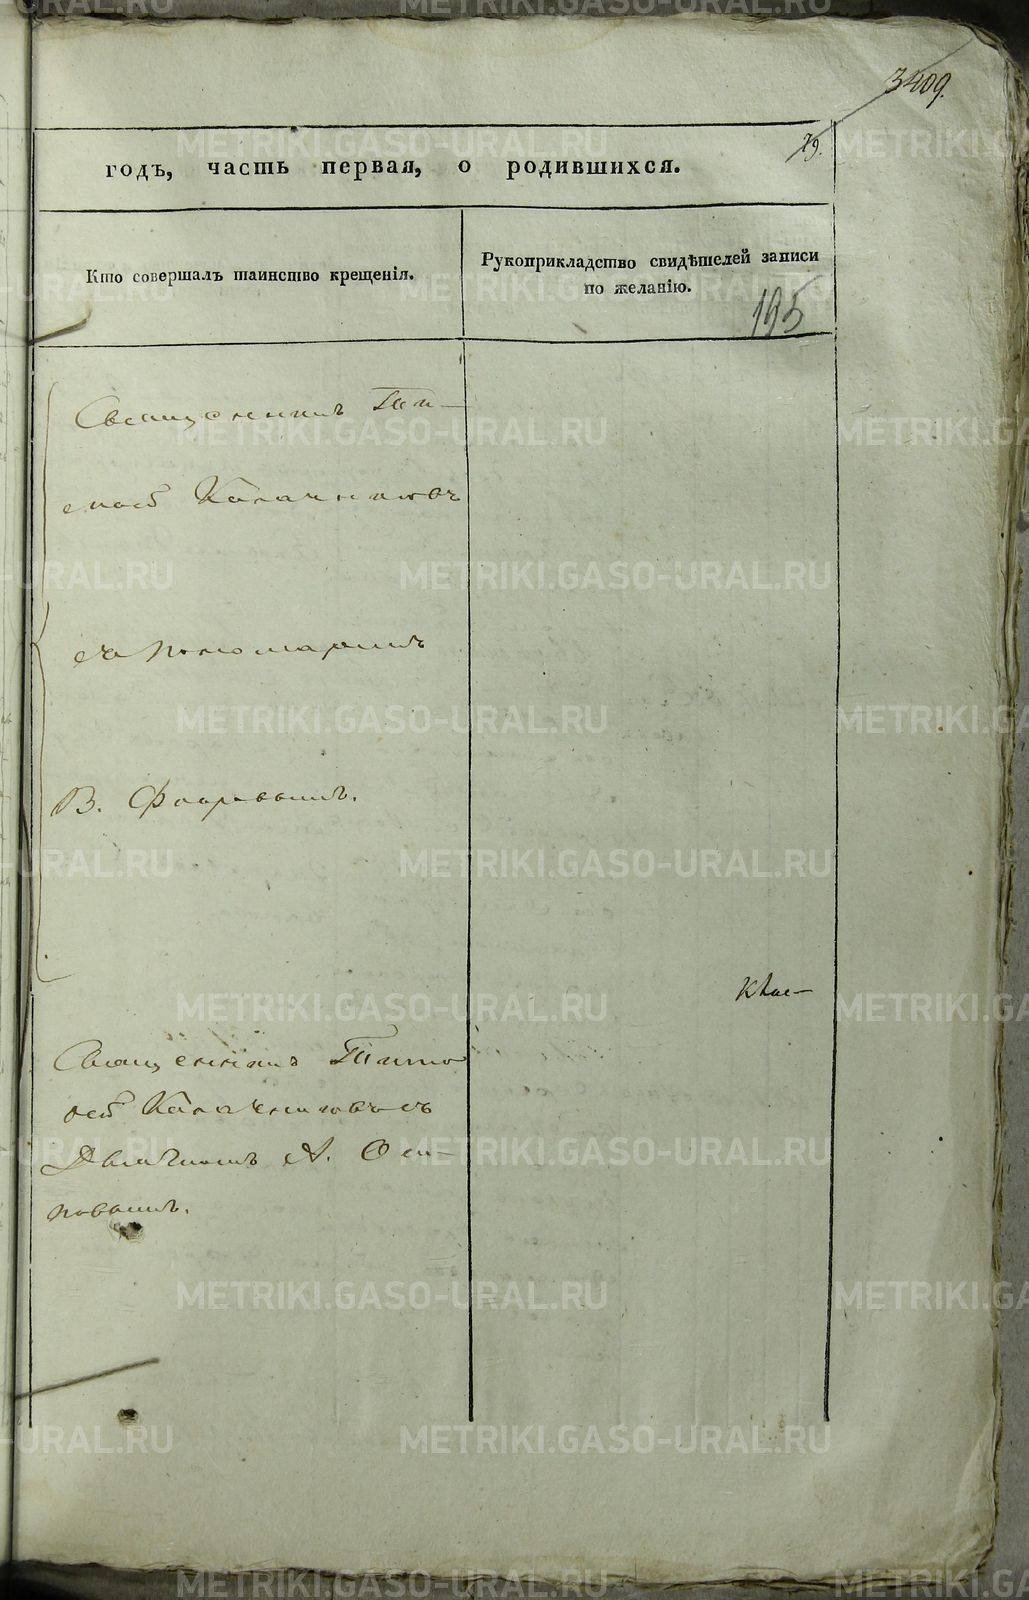 3409.
79.
годъ, часть первая, о родившихся.
Кто совершалъ таинство крещенія.
Рукоприкладство свидѣтелей записи
по желанію.
195
Священникъ Ти-
мооей Калачниковъ
съ пономаремъ
В. Флоровымъ.
Священникъ Тимо
оей Калачниковъ съ
Дьячкомъ А. Оси-
повымъ.
METRIKI.GASO-URAL.RU